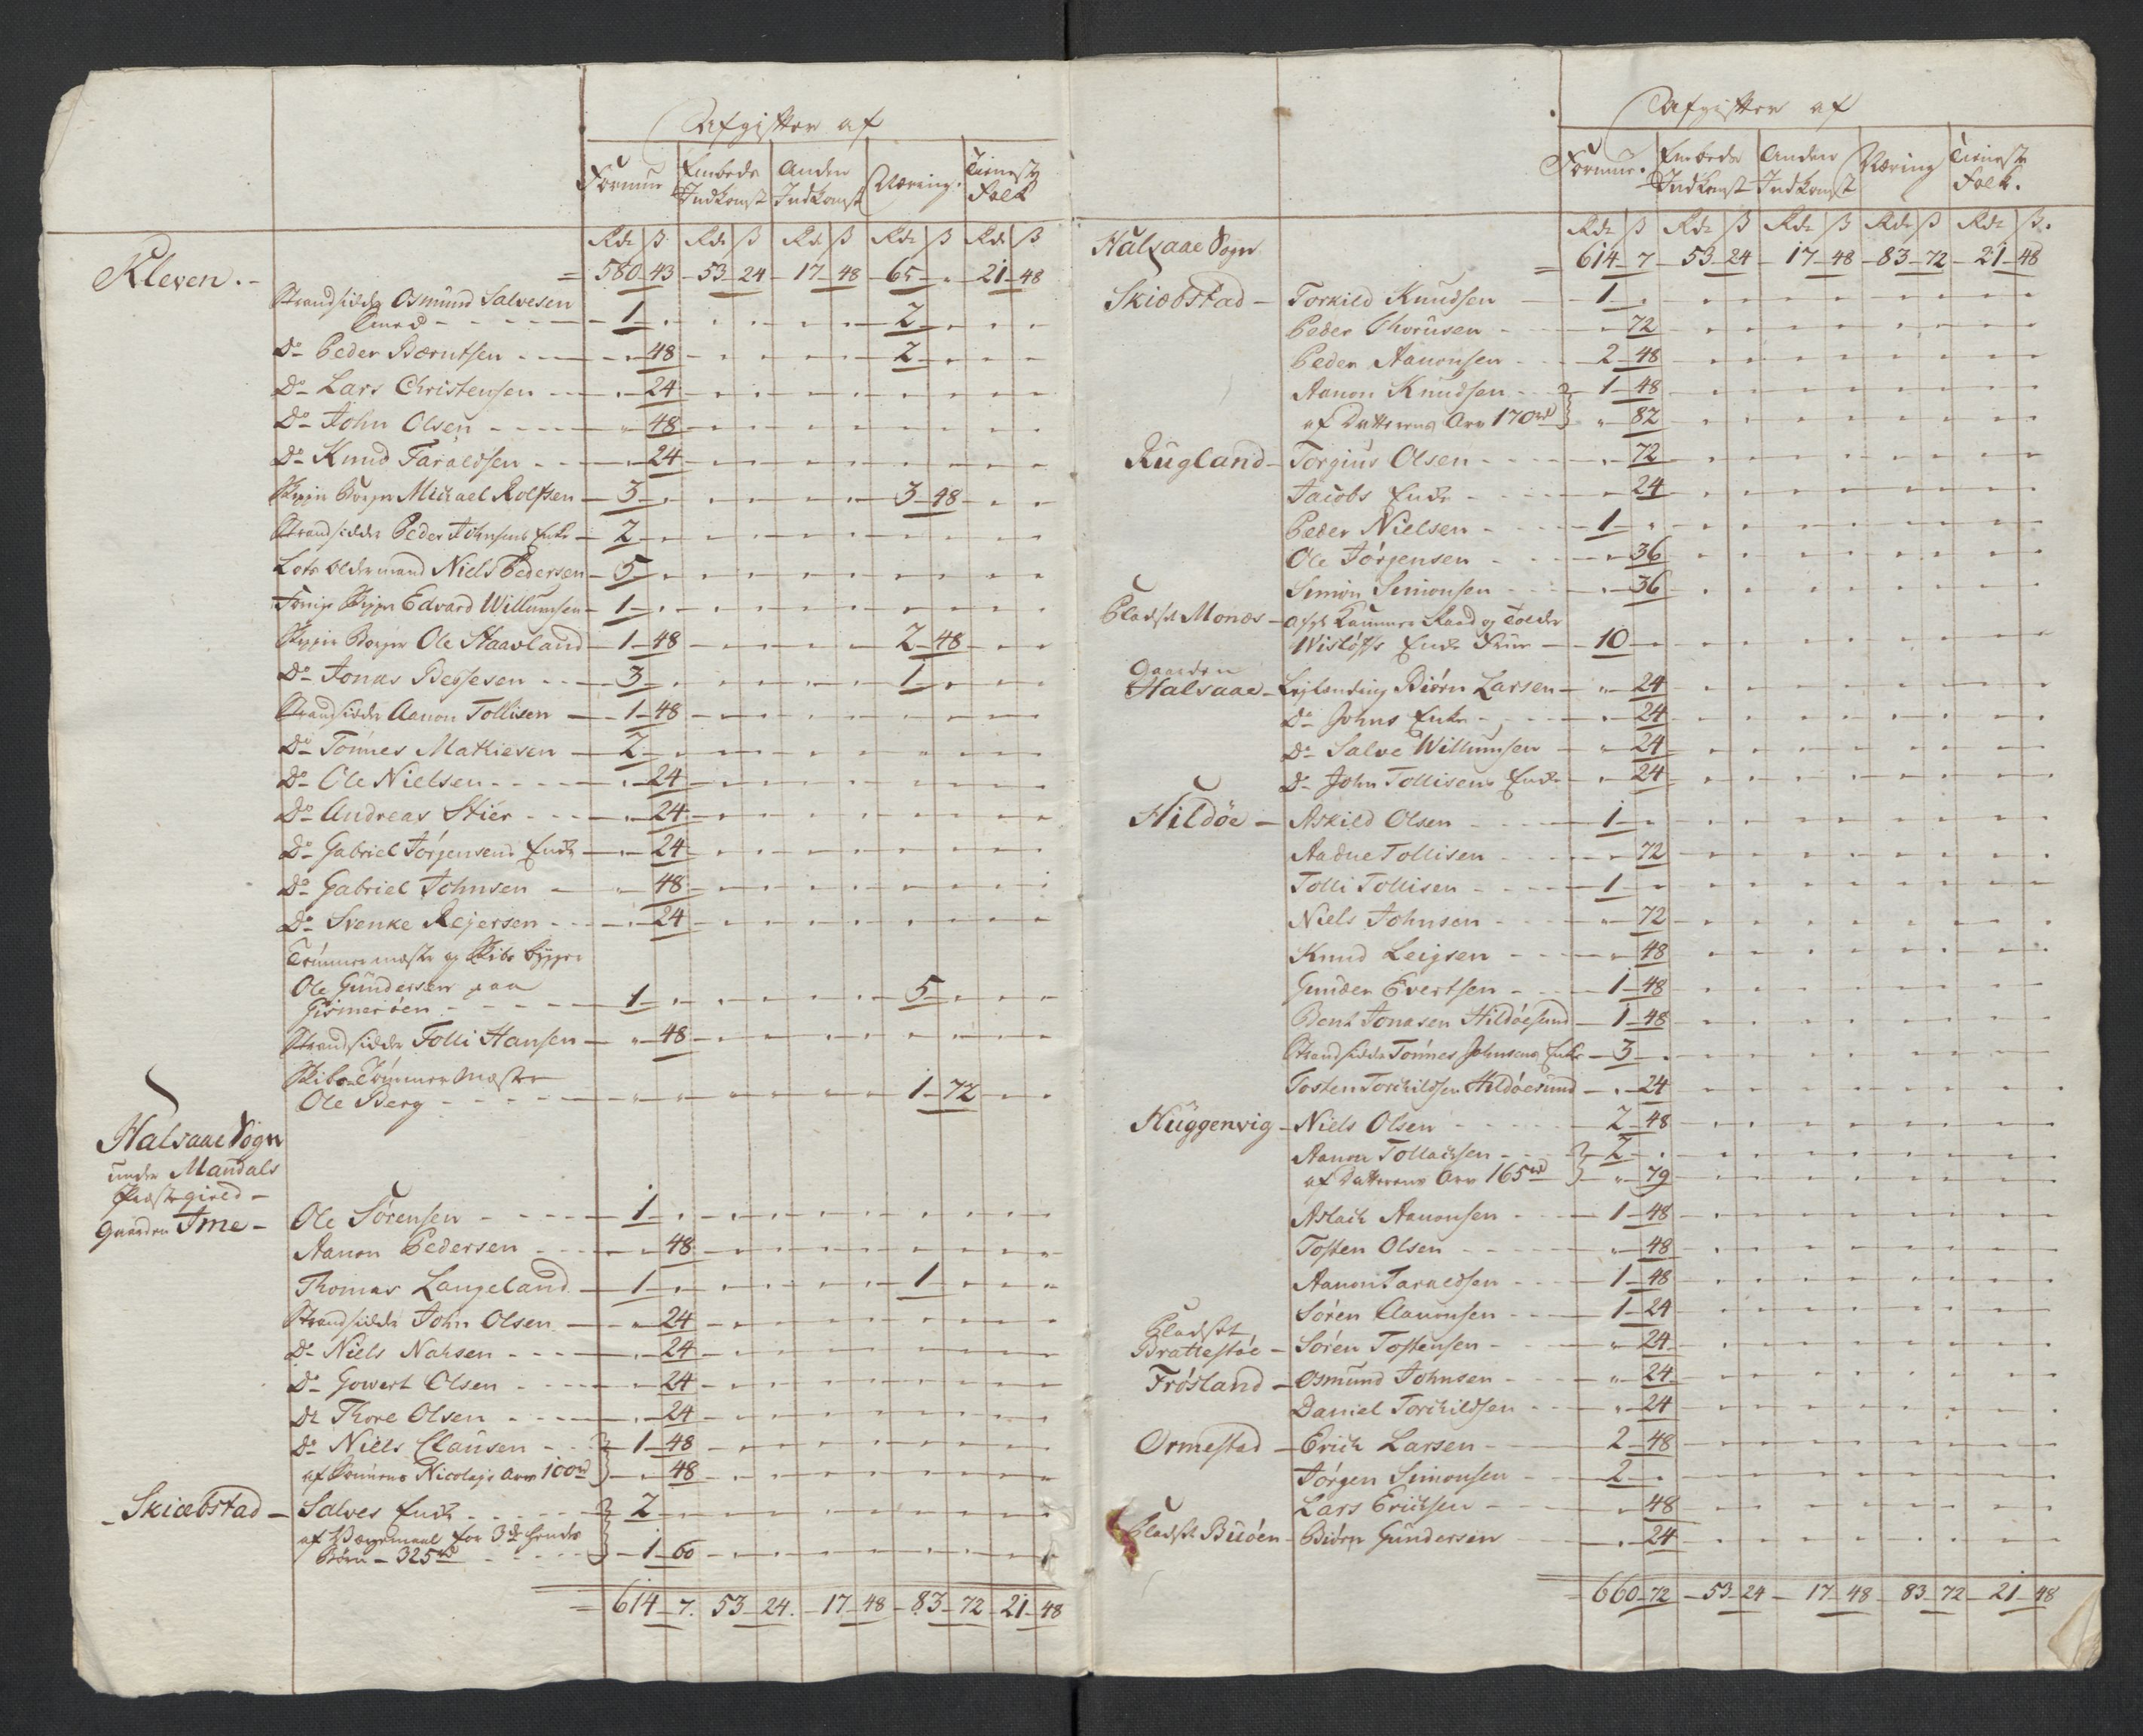 Afgifter af
Formue Embeds Indkomst Anden Indkomst Næring. Tieneste Folk
Rdr ß Rdr ß Rdr ß Rdr ß Rdr ß
Kleven. = 580 43 - 53 24 - 17 48 - 65 " - 21 48
Strandsidder Osmund Salvesen
- 1 - " - 2 - "
Do Peder Berntsen - " 48 - 2 - "
Do Lars Christensen - " 24
Do John Olsen - " 48
Do Knud Taraldsen - " 24
Skipper Borger Michael Rolfsen - 3 - " - 3 48
Strandsidder Peder Johnsens Enke - 2 - "
Lots Oldermand Niels Pedersen - 5 - "
Skipper Edvard Willumsen - 1 - "
Skipper Borger Ole Staavland - 1 48 - 2 48
Do Jonas Bessesen - 3 - " - 1 - "
Strandsidder Aanon Tollisen - 1 48
Do Tönnes Mathiesen - 2 - "
Do Ole Nielsen - " 24
Do Andreas Stier - " 24
Do Gabriel Jörgensens Enke - " 24
Do Gabriel Johnsen - " 48
Do Svenke Rejersen - " 24
Tömmermester og Skibs bygger
Ole Gundersen paa
Gismeröen - 1 - " - 5 - "
Strandsidder Tolli Hansen - " 48
Skibs Tömmer Mester
Ole Berg - " " - 1 72
Halsaae Sogn
under Mandals
Præstegield -
Gaarden Ime - Ole Sörensen - 1 - "
Aanon Pedersen - " 48
Thomas Langeland - 1 - " - 1 - "
Strandsidder John Olsen - " 24
Do Niels Nahsen - " 24
Do Gowert Olsen - " 24
Do Thore Olsen - " 24
Do Niels Clausen - 1 48
af Nicolajs Arv 100rd - " 48
Skiæbstad - Salves Enke - 2 - "
af Værgemaal for 3de hendes
Börn - 325rd - 1 60
= 614 7. 53 24. - 17 48 - 83 72 - 21 48
Afgifter af
Formue. Embeds Indkomst Anden Indkomst Næring Tieneste Folk.
Rdr ß Rdr ß Rdr ß Rdr ß Rdr ß.
Halsaae Sogn
= 614 7 - 53 24 - 17 48 - 83 72 - 21 48
Skiæbstad - Torkild Knudsen - 1 - "
Peder Thorusen - " 72
Peder Aanonsen - 2 48
Aanon Knudsen - 1 48
af Datterens Arv 170rd - " 82
Rugland - Torgius Olsen - " 72
Jacobs Enke - " 24
Peder Nielsen - 1 - "
Ole Jörgensen - " 36
Simon Simonsen - " 36
Pladset Monæs - Kammer Raad og Tolder
Wislöffs Enke Frue - 10 - "
Gaarden
Halsaae - Lejlending Biörn Larsen - " 24
Do Johns Enke - " 24
Do Salve Willumsen - " 24
Do John Tollisens Enke - " 24
Hildöe - Askild Olsen - 1 - "
Aadne Tollisen - " 72
Tolli Tollisen - 1 - "
Niels Johnsen - " 72
Knud Leigsen - " 48
Gunder Evertsen - 1 48
Bent Jonasen Hildöesund - 1 48
Strandsidder Tönnes Johnsens Enke - 3 - "
Tosten Torkildsen Hildöesund - " 24
Huggenvig - Niels Olsen - 2 48
Aanon Tollachsen - 2 - "
af Datterens Arv 165rd - " 79
Aslach Aanonsen - 1 48
Tosten Olsen - " 48
Aanon Taraldsen - 1 48
Sören Aanonsen - 1 24
Pladset
Bratiestöe - Sören Tostensen - " 24
Frösland - Osmund Johnsen - " 24
Daniel Torchildsen - " 24
Ormestad - Erich Larsen - 2 48
Jörgen Simonsen - 2 - "
Lars Erichsen - " 48
Pladset Buöen - Biörn Gundersen - " 24
= 660 72 - 53 24 - 17 48 - 83 72 - 21 48